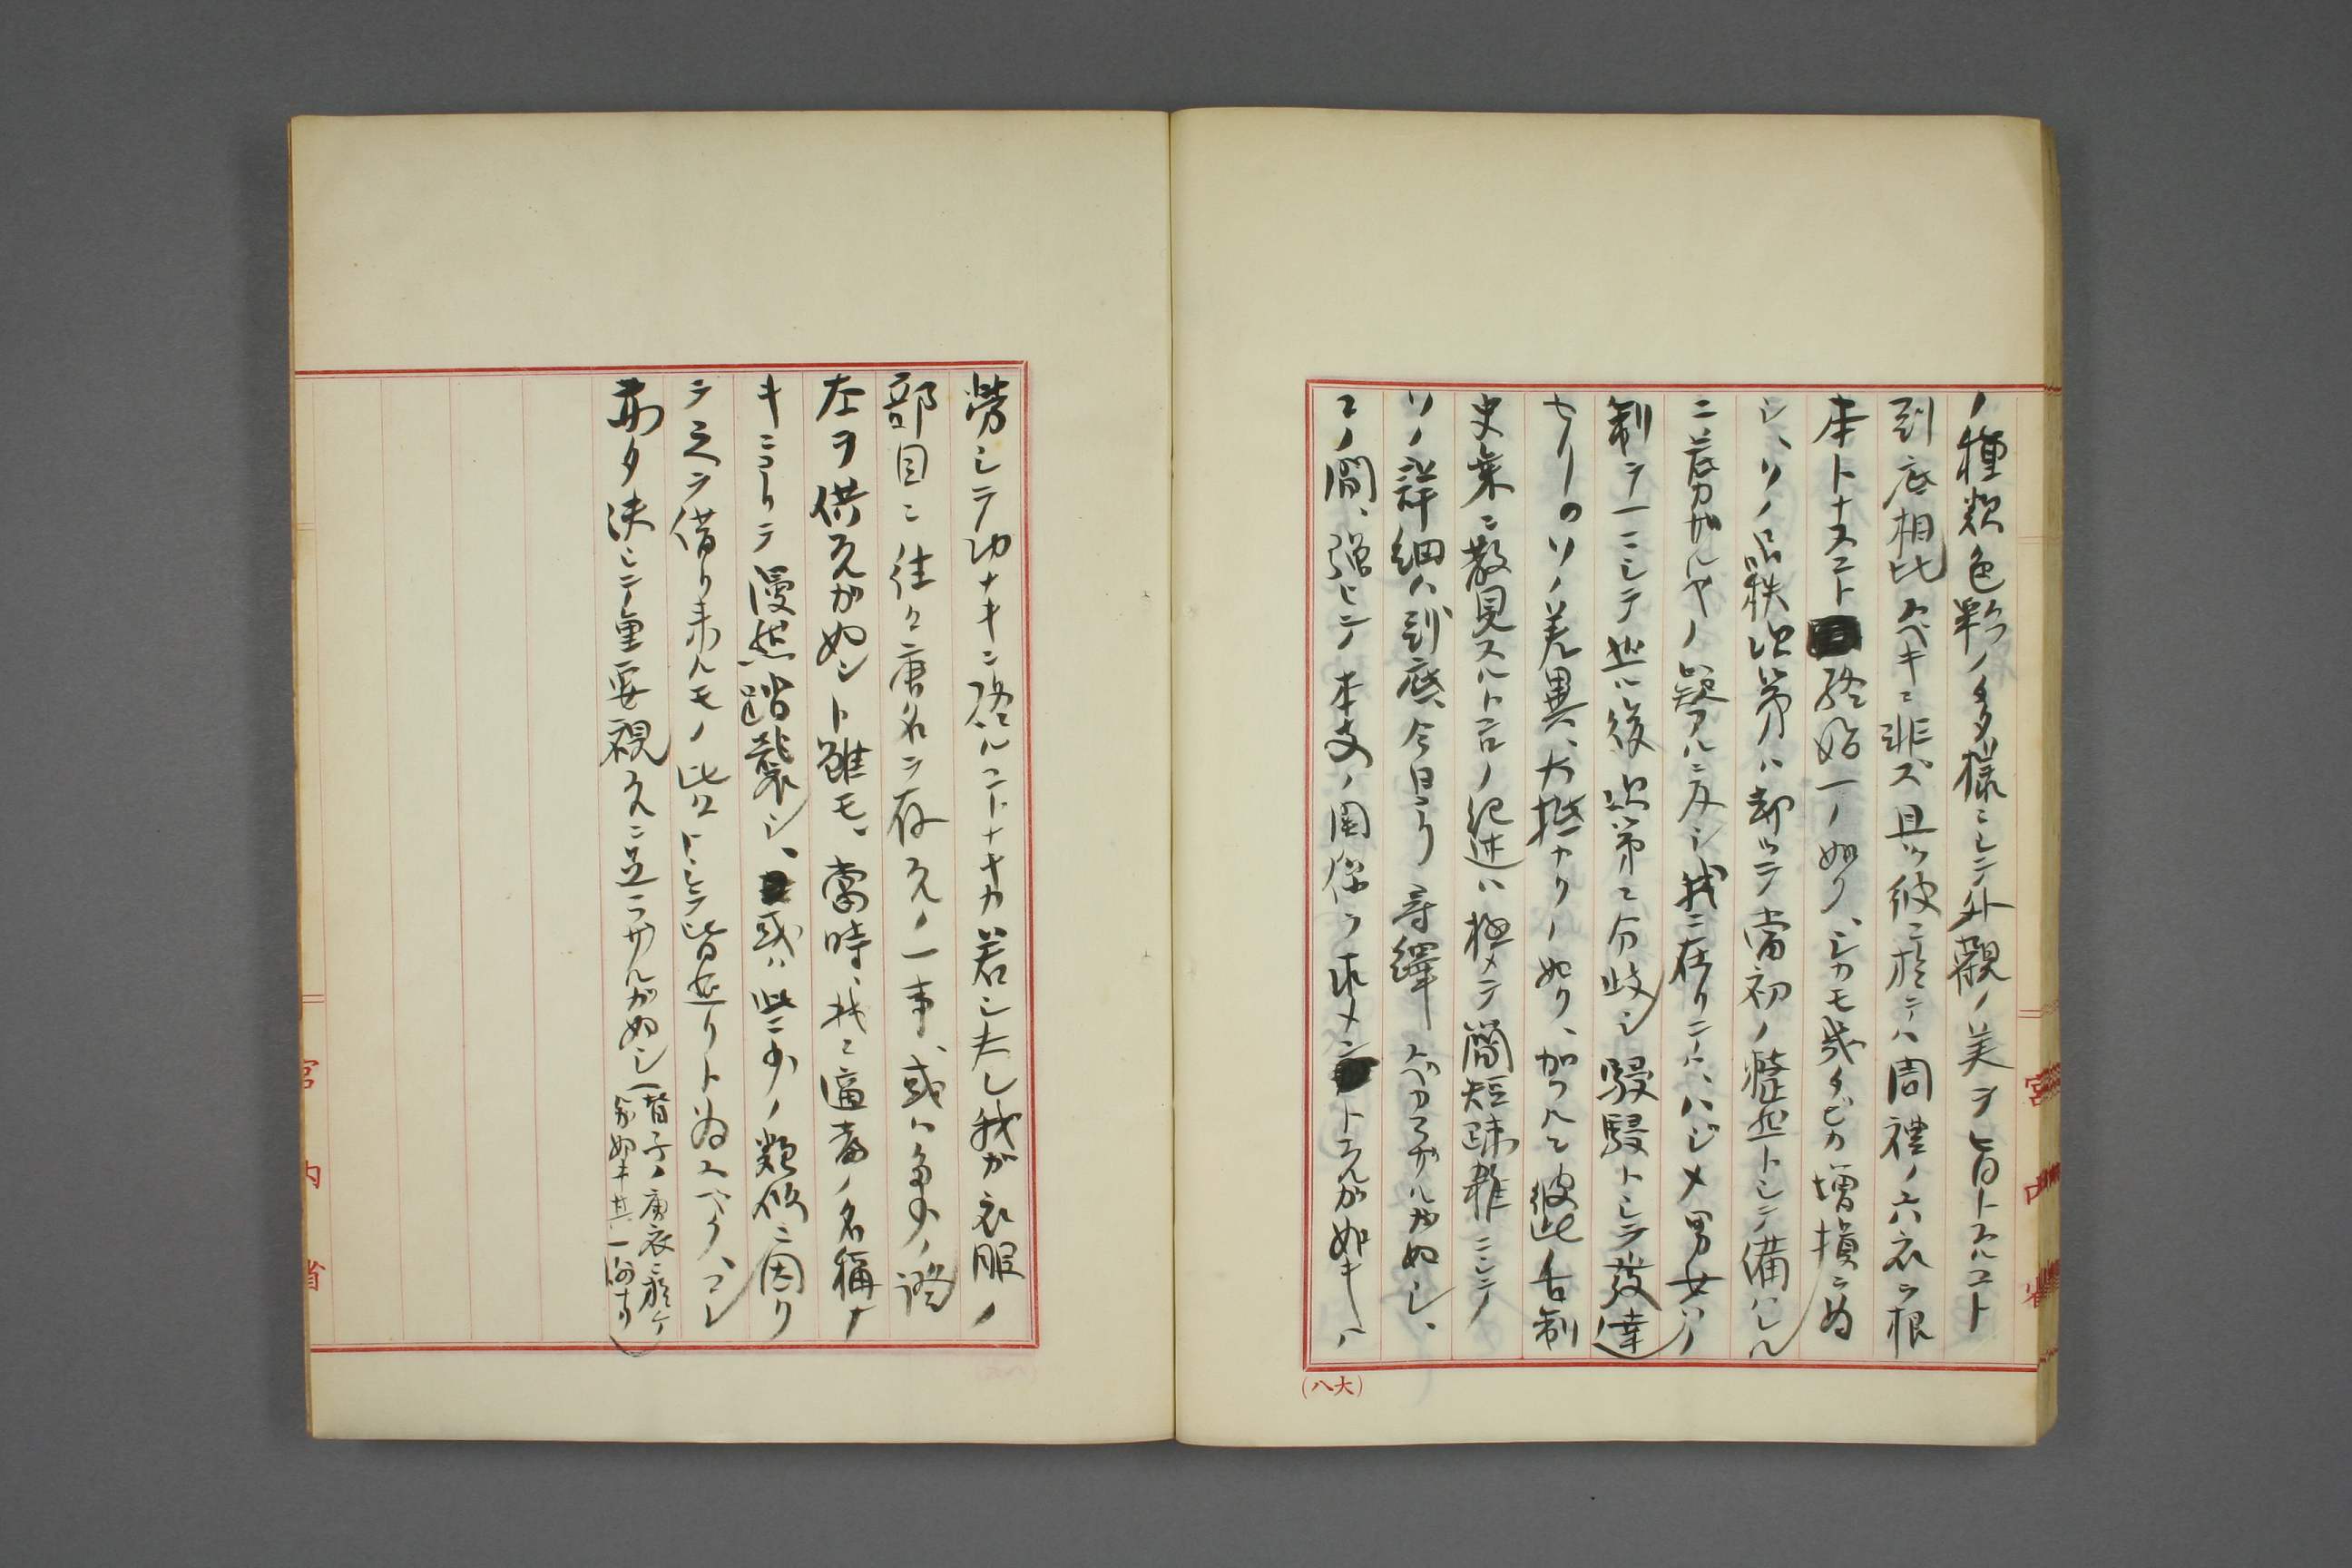 ノ種類色彩ノ多樣ニシテ外觀ノ美ヲ旨トスルコト
到底相比スベキニ非ズ且ツ彼ニ於テハ周禮ノ六衣ヲ根
本トナスコト終始一ノ如ク、シカモ幾タビカ增損ヲ為
シ、ソノ品秩次第ハ却ッテ當初ノ整然トシテ備ハレル
ニ若カザルヤノ疑アルニ反シ我ニ在リテハ、ハジメ男女ノ
制ヲ一ニシテ然ル後次第ニ分岐シ駸駸トシテ發達
セリ。ソノ差異、大抵カクノ如ク、加フルニ彼此ノ古制
史乘ニ散見スルトコロノ記述ハ極メテ簡短疎雜ニシテ
ソノ詳細ハ到底、今日ヨリ尋繹スベカラザルガ如シ、
コノ間、强ヒテ本支ノ関係ヲ求メントスルガ如キハ
勞シテ功ナキニ終ルコトナキカ若シ夫レ我ガ衣服ノ
部目ニ往々唐名ヲ存スルノ一事、或ハ多少ノ證
左ヲ供スルガ如シト雖モ、當時、我ニ適當ノ名稱ナ
キニヨリテ漫然踏襲シ、或ハ些少ノ類似ニ因リ
テ之ヲ借リ来ルモノ比々トシテ皆然リト為スベク、コレ
亦タ決シテ重要視スルニ足ラザルガ如シ(皆子ノ唐衣ニ於ケ
ル如キ其一例ナリ)
(八大)
宮内省
宮内省